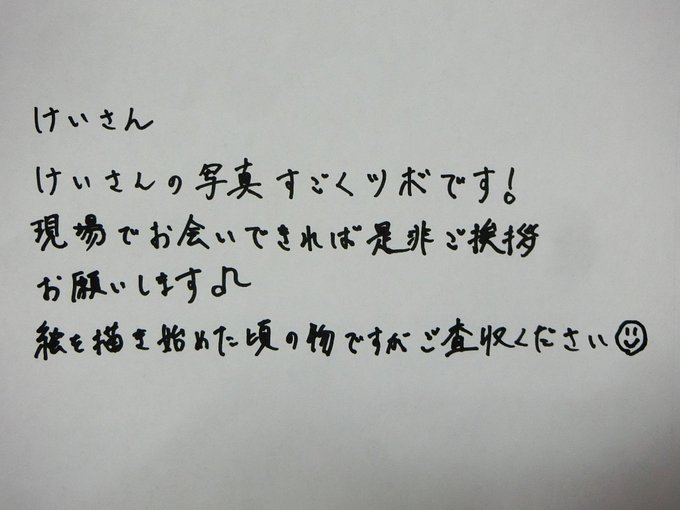 けいさん
けいさんの写真すごくツボです!
現場でお会いできれば是非ご挨拶
お願いします♫
絵を描き始めた頃の物ですがご査収ください☺